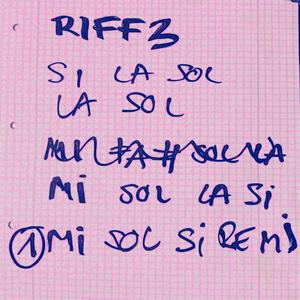 RIFF3
SI LA SOL
LA SOL
MI SOL LA SI
① MI SOL SI RE MI